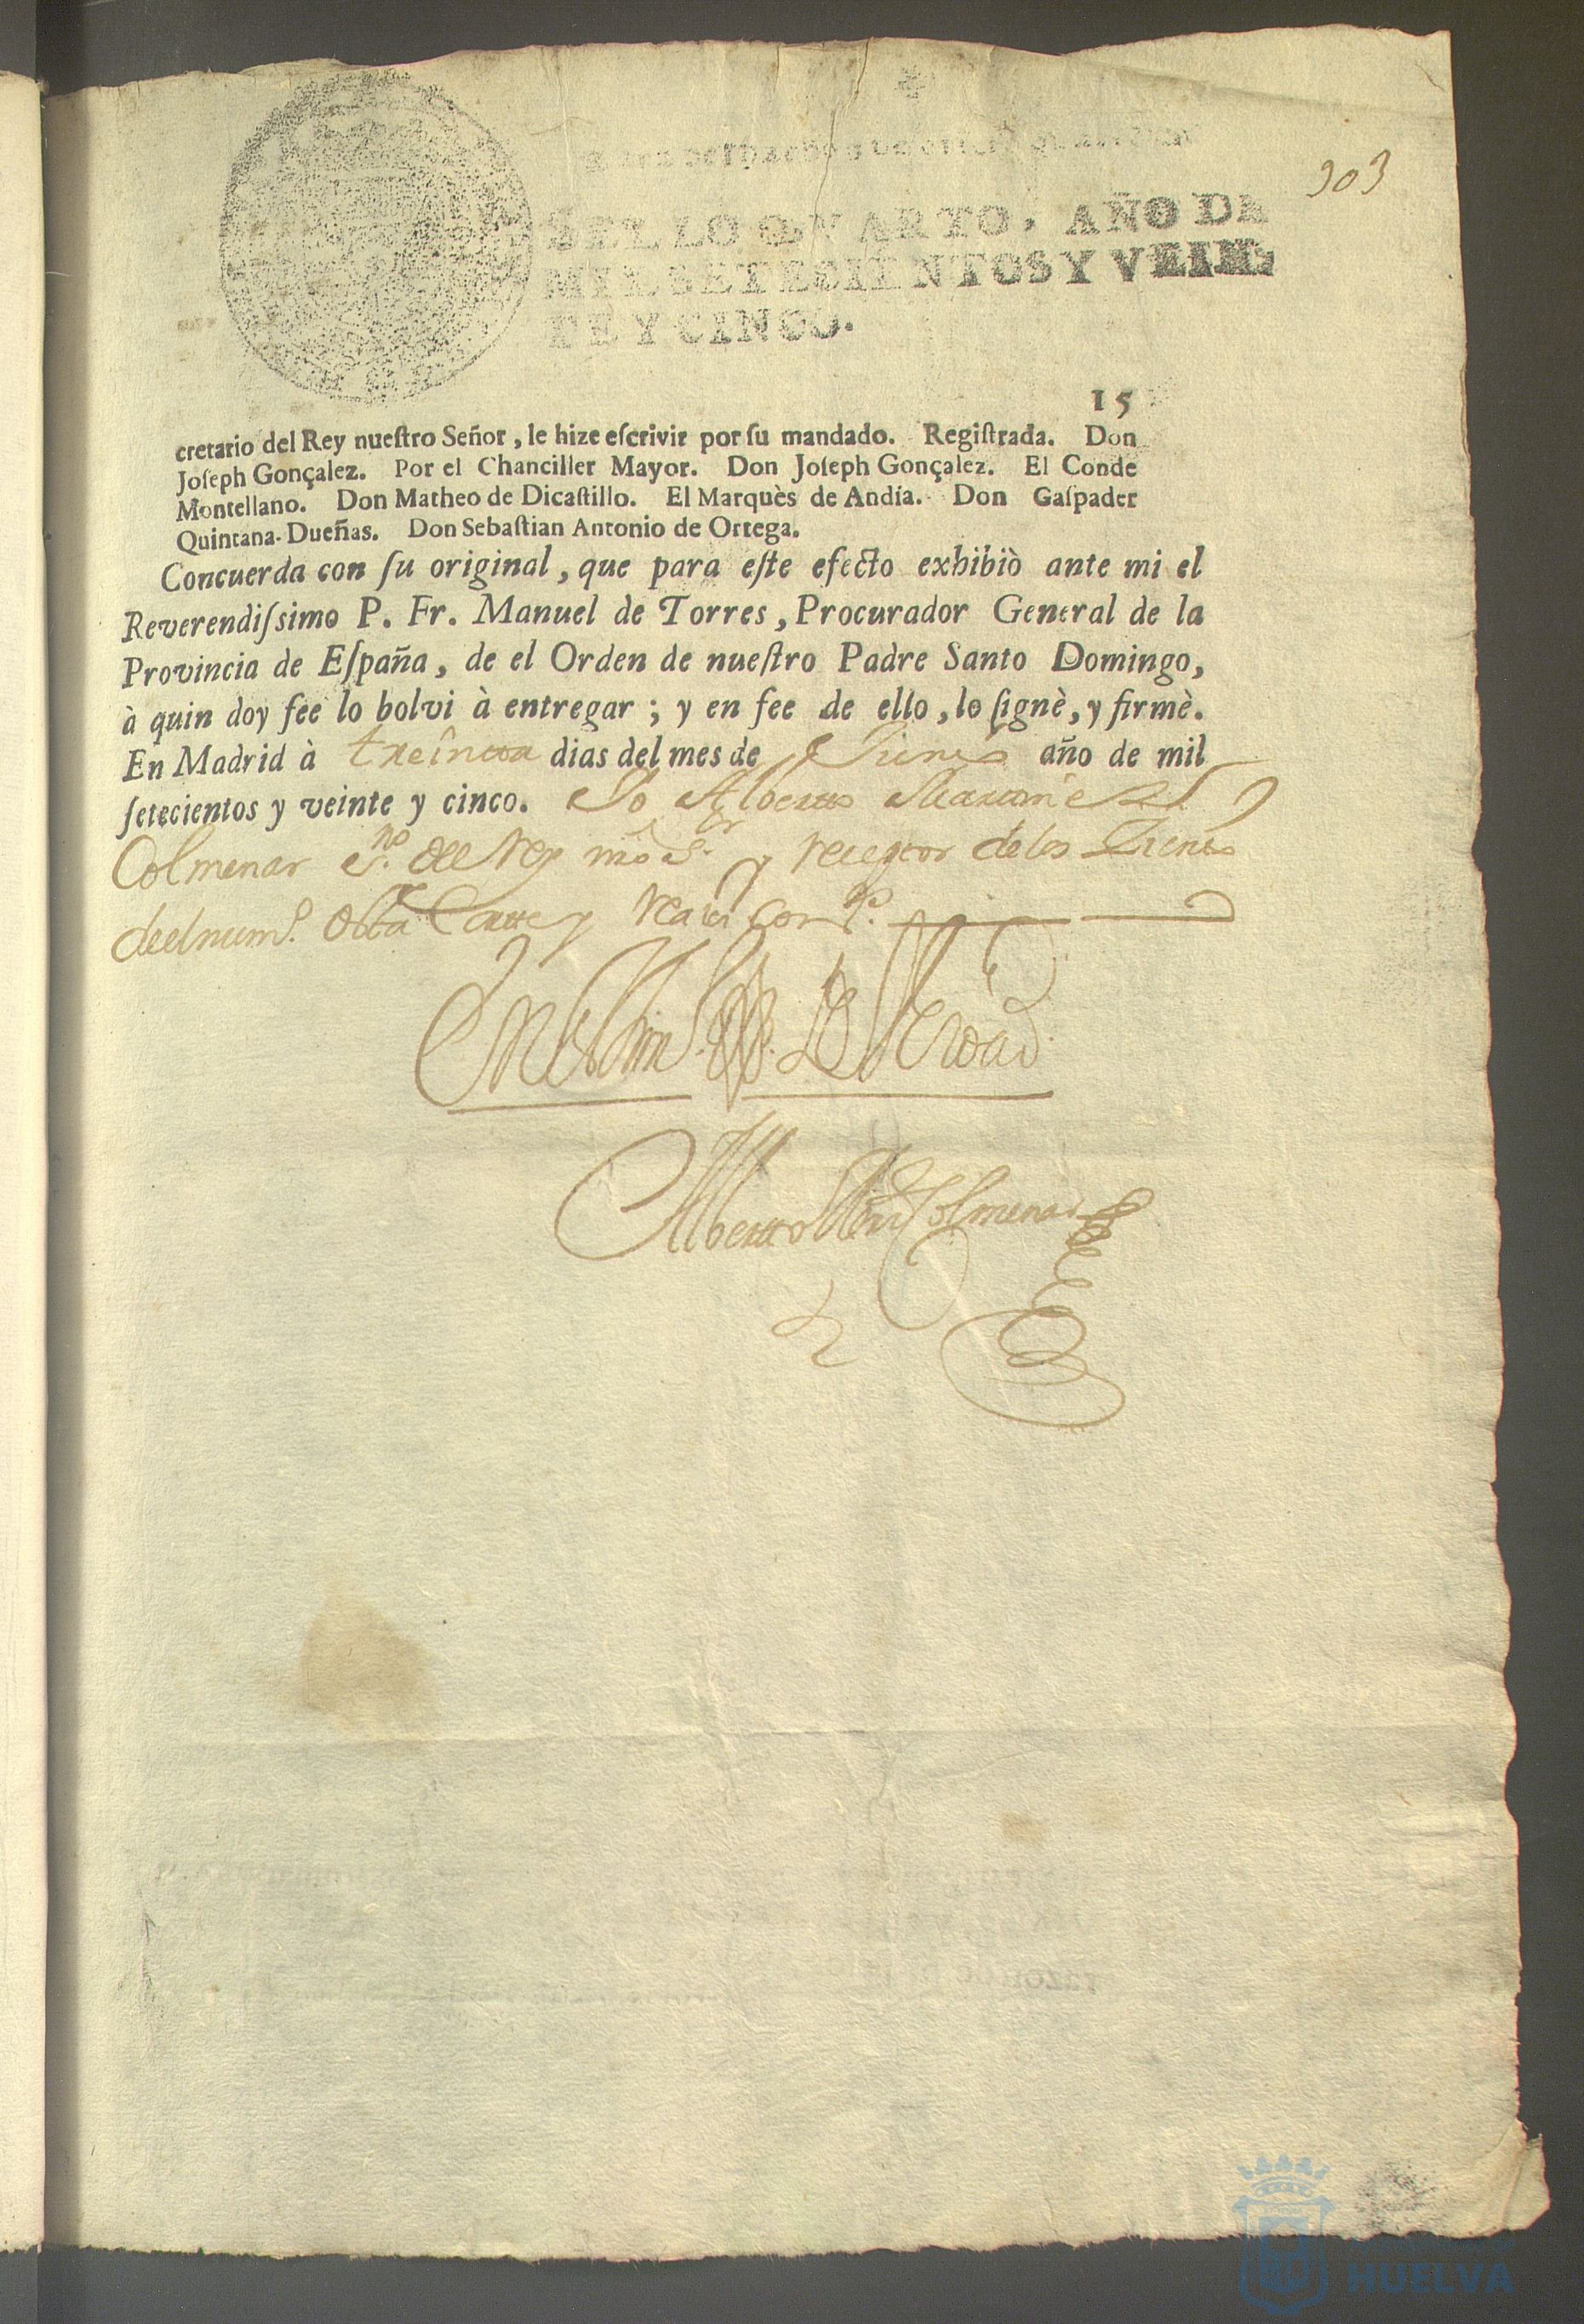 para despachos de oficio
303
SELLO QVARTO, AÑO DE
MIL SETECIENTOS Y VEIN-
TE Y CINCO.
15
cretario del Rey nueſtro Señor, le hize eſcrivir por ſu mandado. Regiſtrada. Don
Joſeph Gonçalez. Por el Chanciller Mayor. Don Joſeph Gonçalez. El Conde
Montellano. Don Matheo de Dicaſtillo. El Marquès de Andía. Don Gaſpader
Quintana-Dueñas. Don Sebaſtian Antonio de Ortega.
Concuerda con ſu original, que para eſte efecto exhibiò ante mi el
Reverendiſsimo P. Fr. Manuel de Torres, Procurador General de la
Provincia de Eſpaña, de el Orden de nueſtro Padre Santo Domingo,
à quin doy fee lo bolvi à entregar; y en fee de ello, lo ſignè, y firmè.
En Madrid à treinta dias del mes de Junio año de mil
ſetecientos y veinte y cinco. Yo Alberto Martinez
Colmenar s.no del Rey nro s.r y receptor de los
del num.o
En testim.o de Verdad
Alberto Mrnz Colmenar
HUELVA